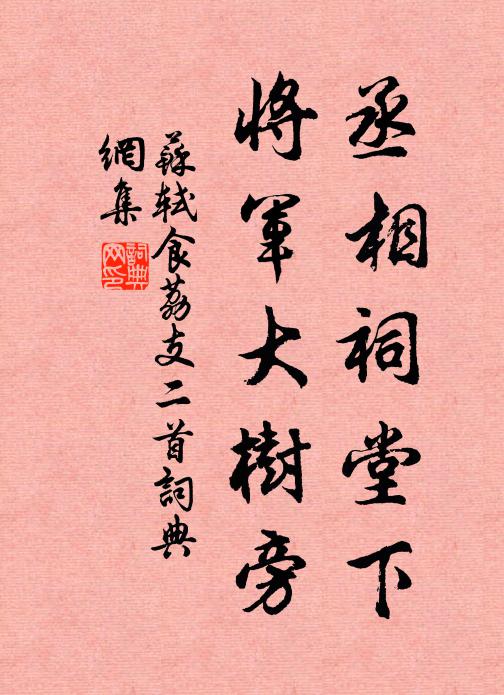 丞相祠堂下
將軍大樹旁
蘇軾食荔支二首詞典
網集
詞典
網印